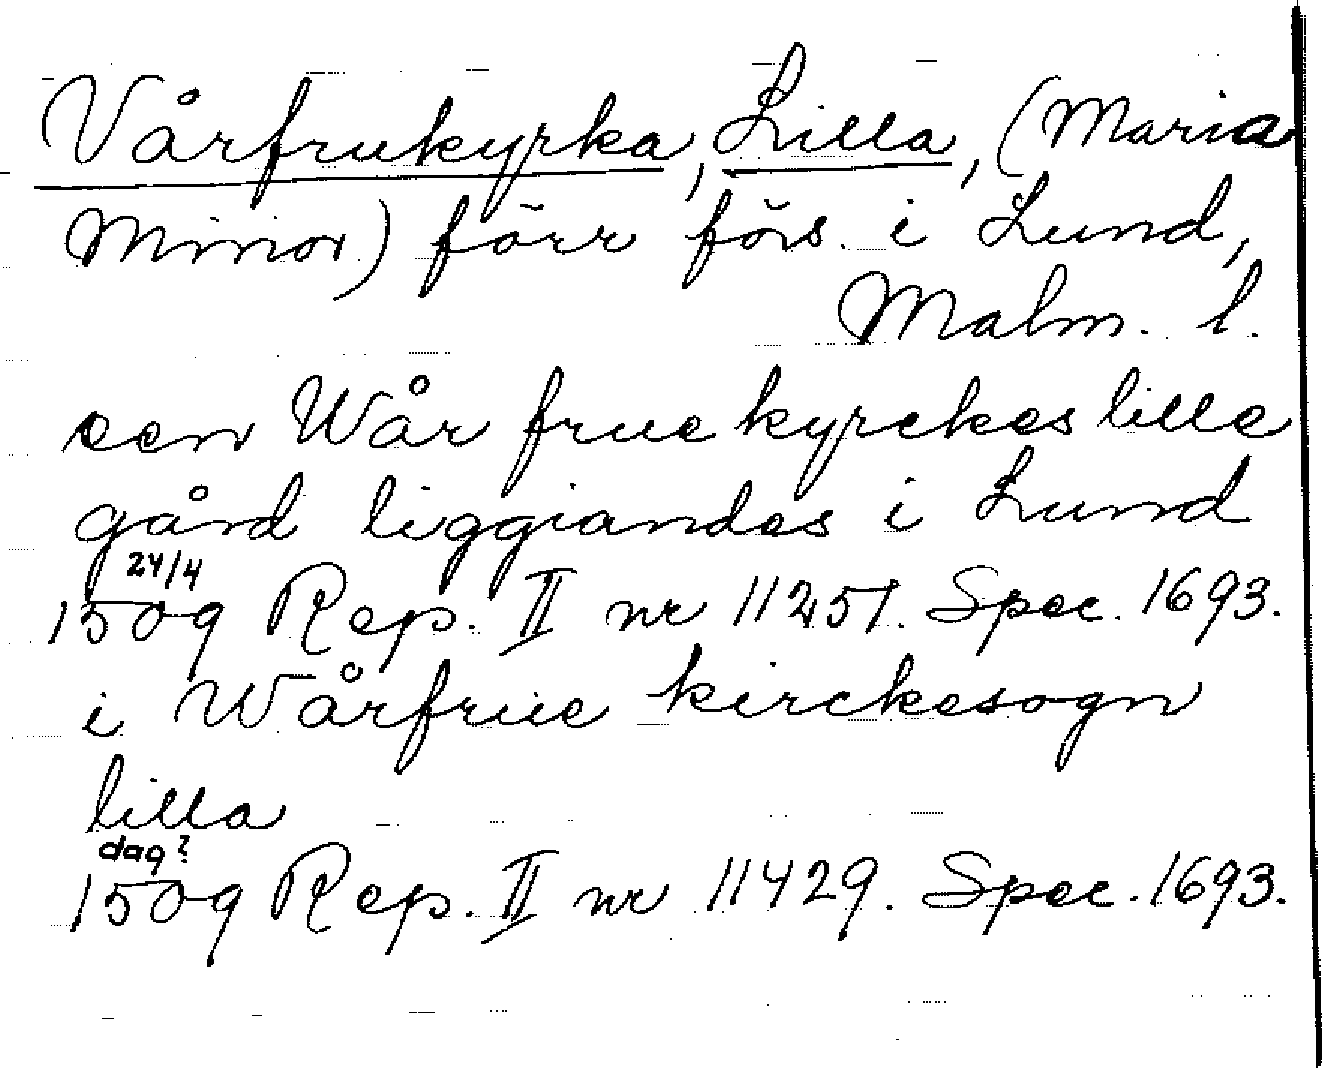 Vårfrukyrka, Lilla, (Maria
Minor) förr förs. i Lund,
Malm. l.
een Wår frue kyrckes lille
gård liggiandes i Lund
24/4
1509 Rep. II nr 11251. Spec. 1693.
i Wårfrue kirckesogn
lilla
dag?
1509 Rep. II nr 11429. Spec. 1693.